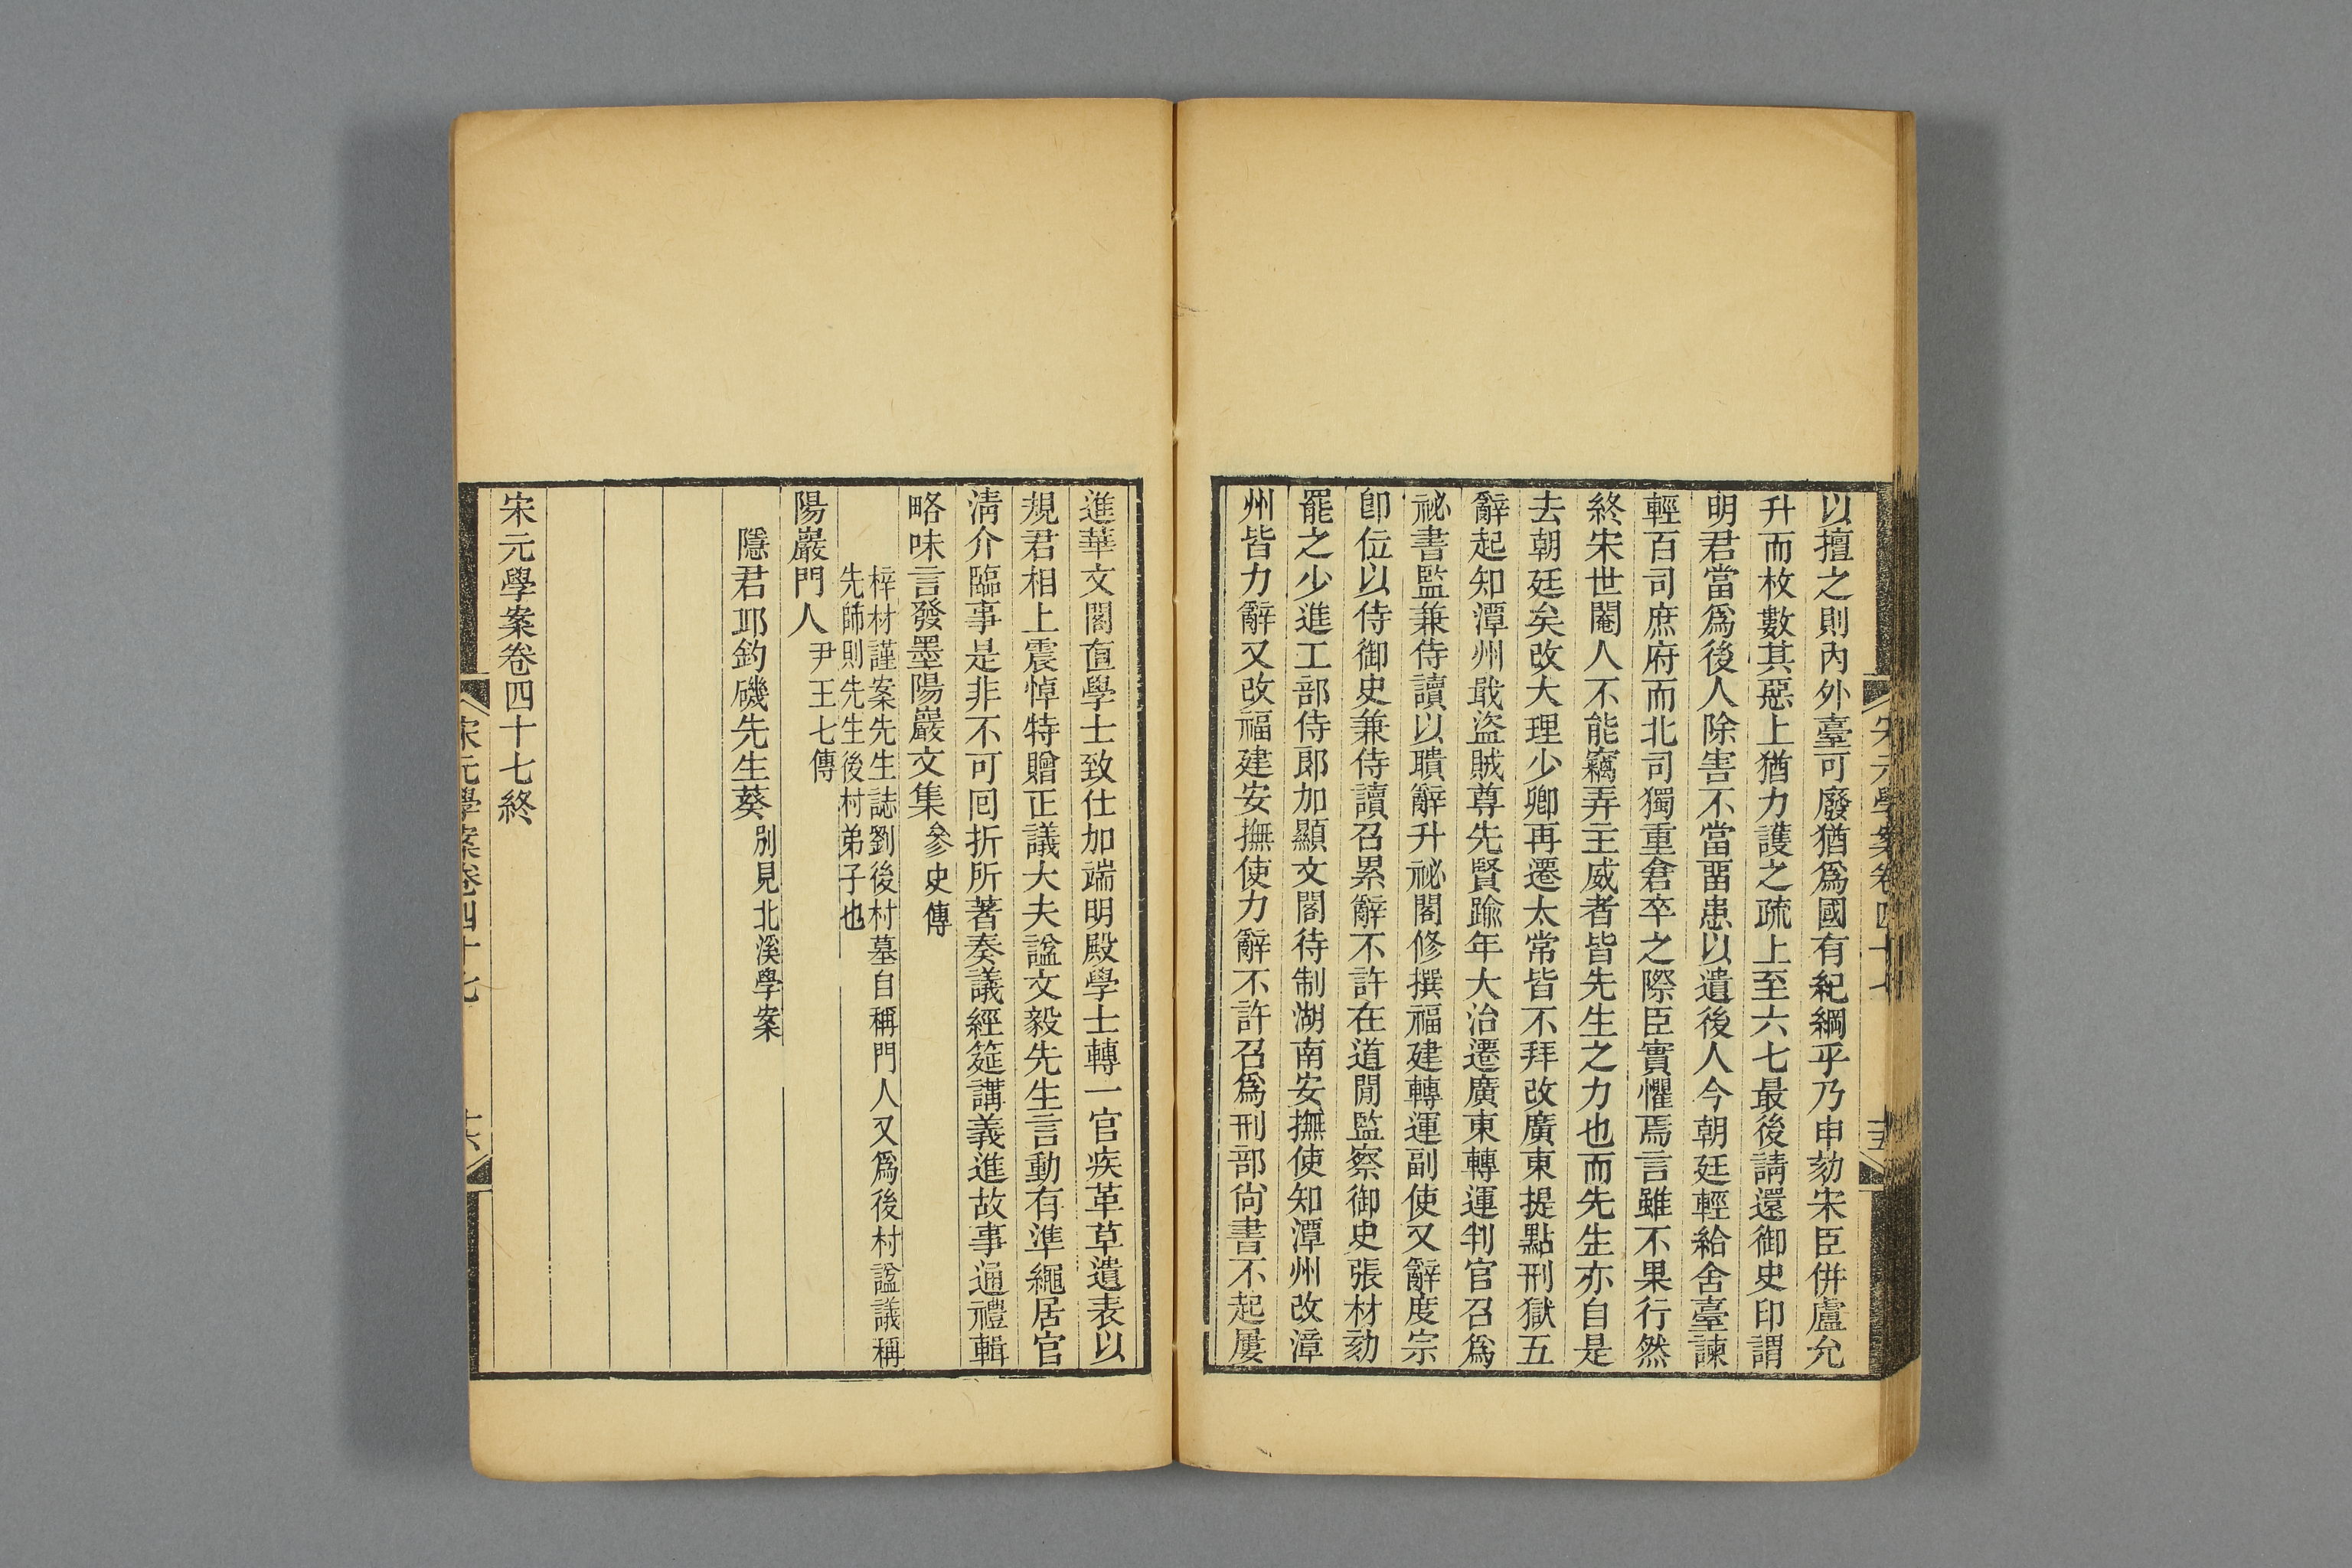 宋元學案卷四十七
十五
以擅之則內外臺可廢猶爲國有紀綱乎乃申劾宋臣併盧允
升而枚數其惡上猶力護之疏上至六七最後請還御史印謂
明君當爲後人除害不當畱患以遺後人今朝廷輕給舍臺諫
輕百司庶府而北司獨重倉卒之際臣實懼焉言雖不果行然
終宋世閹人不能竊弄主威者皆先生之力也而先生亦自是
去朝廷矣改大理少卿再遷太常皆不拜改廣東提點刑獄五
辭起知潭州戢盜賊尊先賢踰年大治遷廣東轉運判官召爲
祕書監兼侍讀以聵辭升祕閣修撰福建轉運副使又辭度宗
卽位以侍御史兼侍讀召累辭不許在道閒監察御史張材劾
罷之少進工部侍郎加顯文閣待制湖南安撫使知潭州改漳
州皆力辭又改福建安撫使力辭不許召爲刑部尙書不起屢
進華文閣直學士致仕加端明殿學士轉一官疾革草遺表以
規君相上震悼特贈正議大夫諡文毅先生言動有準繩居官
淸介臨事是非不可囘折所著奏議經筵講義進故事通禮輯
略味言發墨陽巖文集參史傳
梓材謹案先生誌劉後村墓自稱門人又爲後村諡議稱
先師則先生後村弟子也
陽巖門人尹王七傳
隱君邱釣磯先生葵別見北溪學案
宋元學案卷四十七終
宋元學案卷四十七
十六